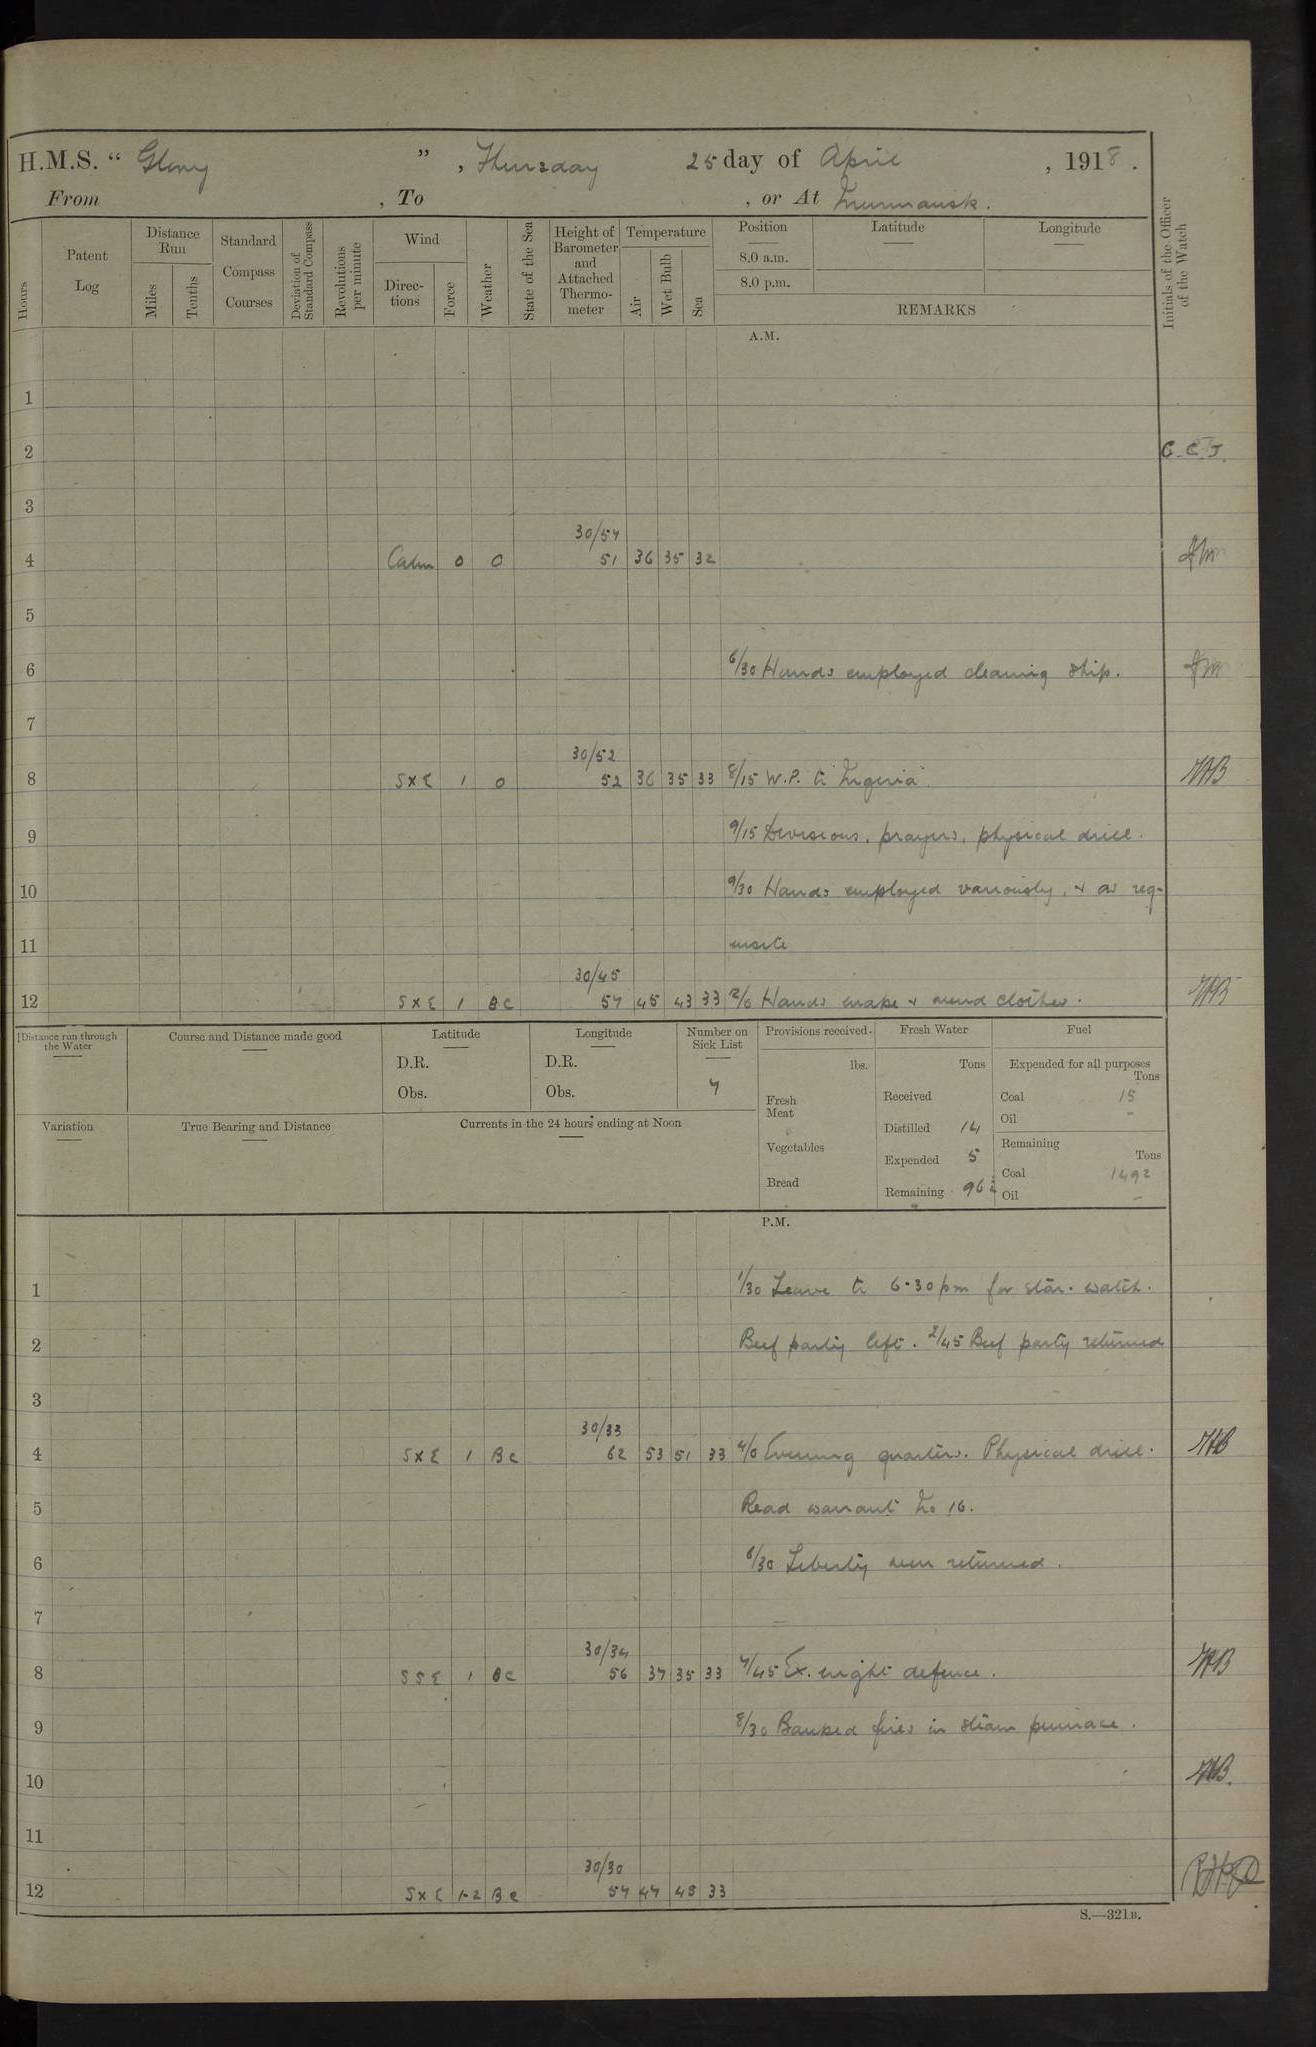 H.M.S. “ Glory ” , Thursday 25 day of April , 1918.
From , To , or At Murmansk.
Hours
Patent Log
Distance Run
Miles
Tenths
Standard Compass Courses
Deviation of Standard Compass
Revolutions per minute
Wind
Directions
Force
Weather
State of the Sea
Height of Barometer and Attached Thermometer
Temperature
Air
Wet Bulb
Sea
Position Latitude Longitude
8.0 a.m.
8.0 p.m.
REMARKS
Initials of the Officer of the Watch
A.M.
1
2 C.C.J.
3
30/54
4 Calm 0 0 51 36 35 32
5
6 6/30 Hands employed cleaning ship.
7
30/52
8 S x E 1 0 52 36 35 33 8/15 W.P. to Nigeria.
9 9/15 Divisions, prayers, physical drill.
10 9/30 Hands employed variously, & as req-
11 uisite
30/45
12 S x E 1 BC 57 45 43 33 2/0 Hands make & mend clothes.
Distance run through the Water
Course and Distance made good
Latitude
D.R.
Obs.
Longitude
D.R.
Obs.
Number on Sick List
7
Provisions received.
lbs.
Fresh Meat
Vegetables
Bread
Fresh Water
Tons
Received
Distilled 14
Expended 5
Remaining 96
Fuel
Expended for all purposes
Tons
Coal 15
Oil -
Remaining
Tons
Coal 1492
Oil -
Variation
True Bearing and Distance
Currents in the 24 hours ending at Noon
P.M.
1 1/30 Leave to 6.30 pm for star. watch.
2 Beef party left. 2/45 Beef party returned
3
30/33
4 S x E 1 BC 62 53 51 33 4/0 Evening quarters. Physical drill.
5 Read warrant No 16.
6 6/30 Liberty men returned.
7
30/34
8 SSE 1 BC 56 37 35 33 7/45 Ex. night defence.
9 8/30 Banked fires in steam pinnace.
10
11
30/30
12 S x E 1-2 BC 57 47 45 33
S.—321B.